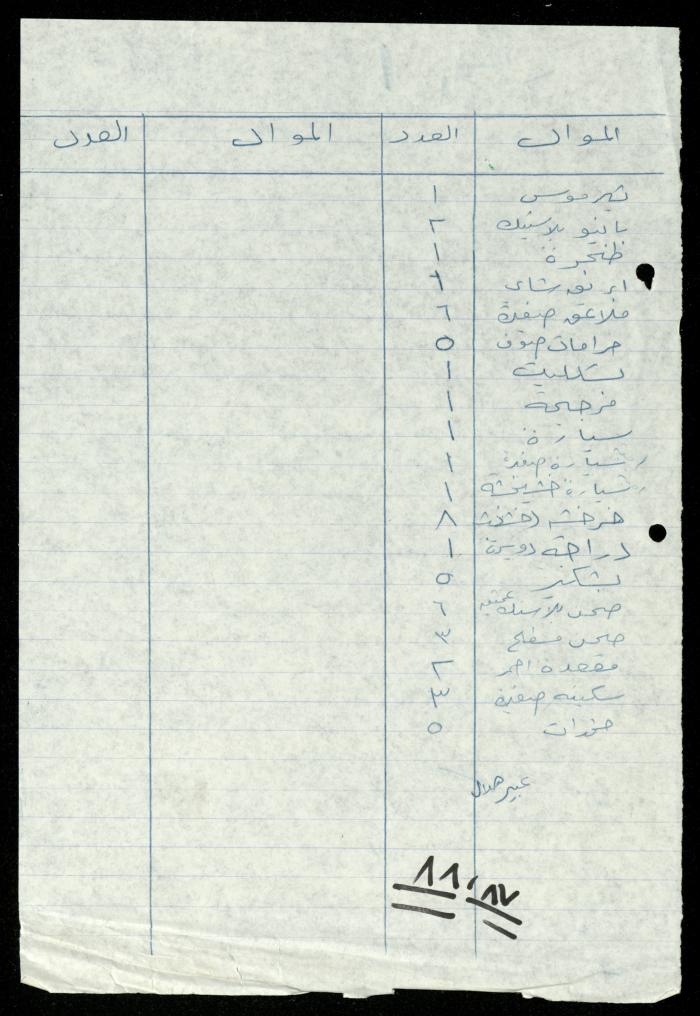 المواد العدد المواد العدد
تيرموس ١
بانيو بلاستيك ٢
طنجرة ١
ابريق شاي ١
ملاعق صغيرة ٦
حرامات صوف ٥
بسكليت ١
مرجيحة ١
سيارة ١
سيارة صغيرة ١
سيارة ١
خرخشه ٨
دراجة ١
بشكير ٥
صحن بلاستيك عميق ٦
صحن مسطح ٣
مقعدة احمر ٢
سكينه صغيرة ٣
مخدات ٥
عبير هلال
١١، ١٢